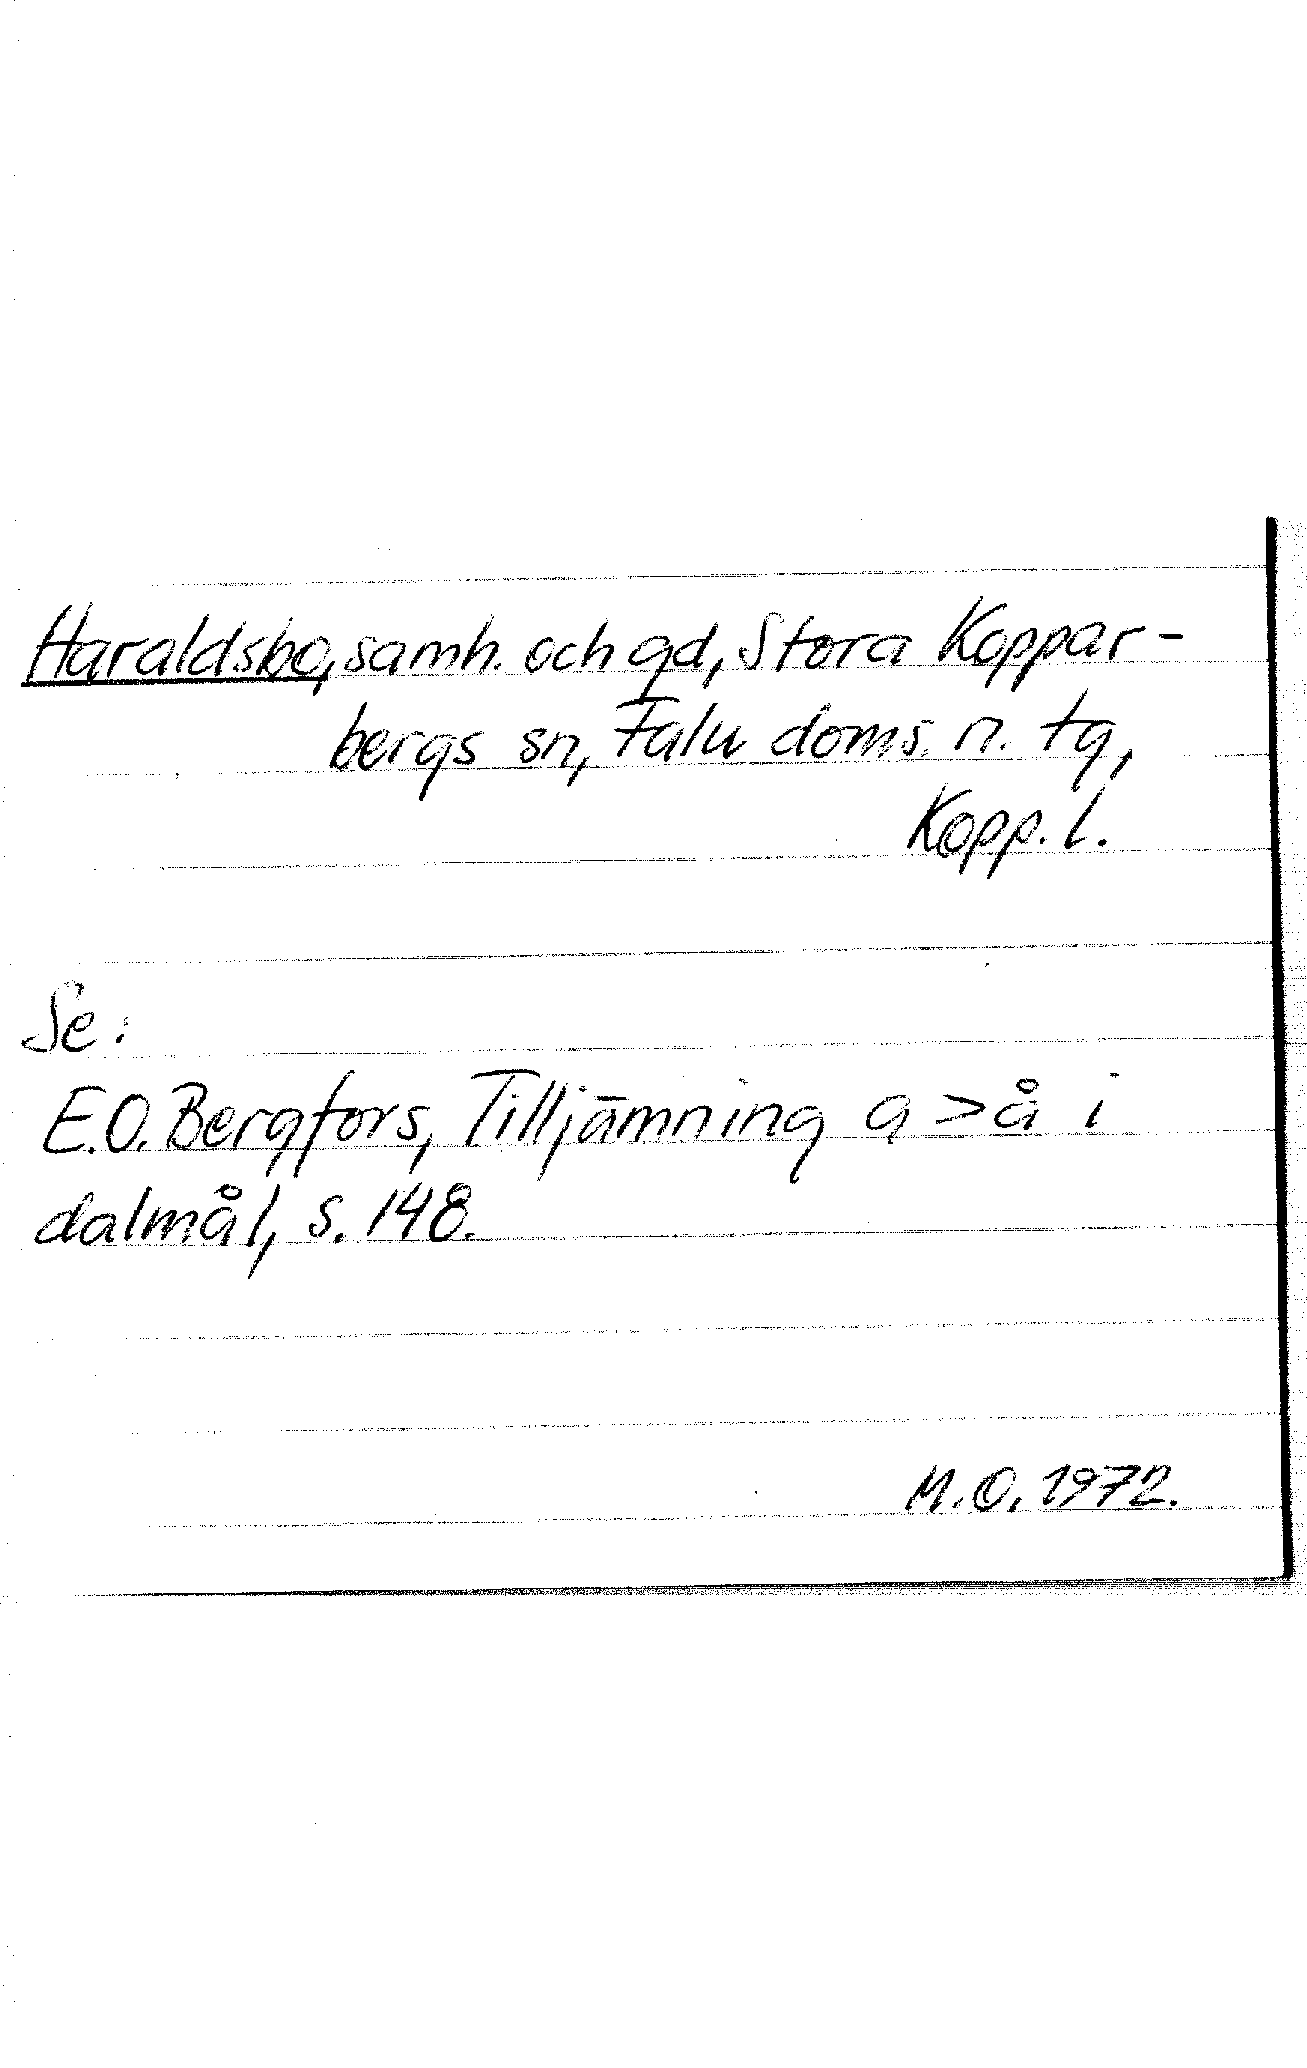 Haraldsbo, samh. och gd, Stora Koppar-
bergs sn, Falu doms. n. tg,
Kopp. l.
Se:
E.O. Bergfors, Tilljämning a > å i
dalmål, s. 148.
M.O. 1972.